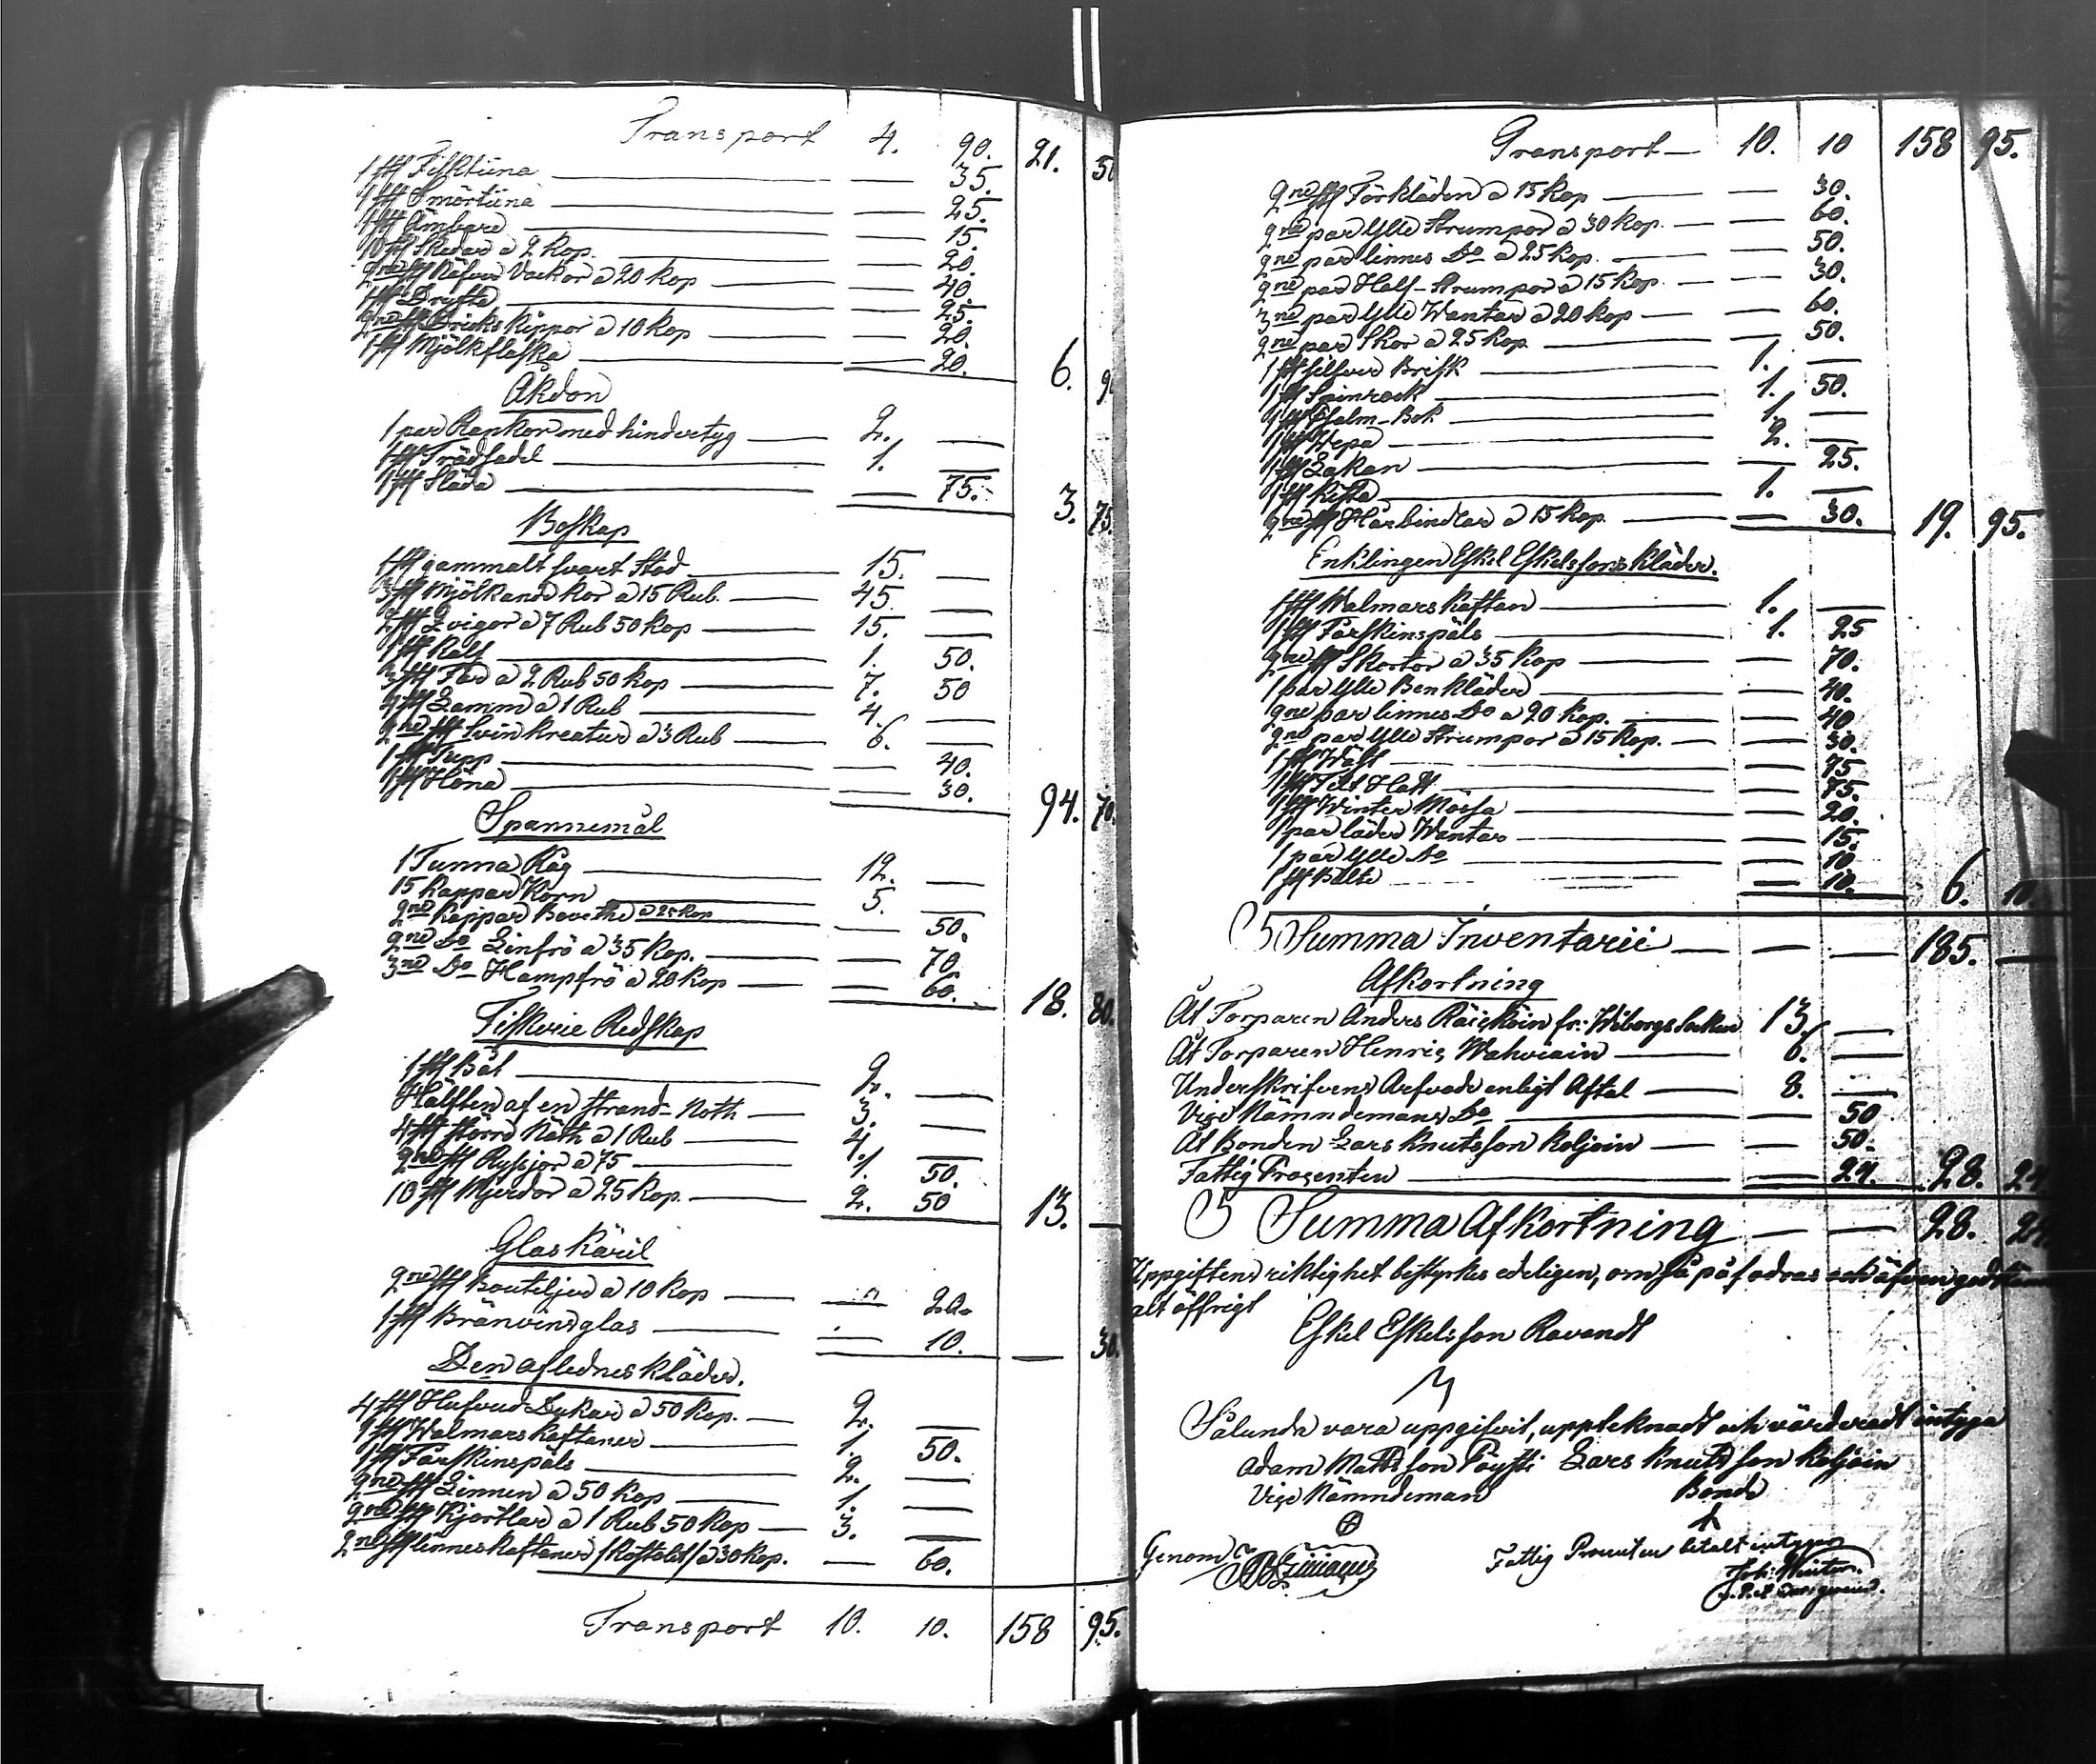 Transport 4. 90. 21. 50
1 st Fisktiina 35.
1 st Smörtiina 25.
1 st Ämbare 15.
10 st Skedar a 2 Kop. 20.
2ne st Näfver Vackor a 20 Kop 40.
1 st Dryfte 25.
2ne st Dricks Kippor a 10 Kop 20.
1 st Mjölkflaska 20. 6. 90
Åkdon
1 par Rankor med hindertyg 2. —
1 st Trädsadel 1. —
1 st Släda — 75. 3. 75.
Boskap
1 st gammalt svart Stod 15. —
3 st Mjölkande Kor a 15 Rub. 45 —
2 st Qvigor a 7 Rub 50 Kop 15. —
1 st Kalf 1. 50.
3 st Får a 2 Rub 50 Kop 7. 50
4 st Lamm a 1 Rub 4. —
2ne st Svin Kreatur a 3 Rub 6. —
1 st Tupp — 40.
1 st Höna — 30. 94. 70.
Spannemål
1 Tunna Råg 12. —
15 Kappar Korn 5. —
2ne Kappar Bovethe a 25 Kop — 50.
2ne Do Linfrö a 35 Kop. — 70
3ne Do Hampfrö a 20 Kop — 60. 18. 80.
Fiskerie Redskap
1 st Båt 2. —
Hälften af en strand-Noth 3. —
4 st större Näth a 1 Rub 4. —
2ne st Ryssjor a 75 1. 50.
10 st Mjerdor a 25 Kop. 2. 50 13. —
Glas Käril
2ne st Bouteljer a 10 Kop — 20.
1 st Bränvins glas — 10. — 30.
Den aflednes kläder.
4 st Hufvud Dukar a 50 Kop. 2. —
2 st Walmars Kaftaner 1. 50.
1 st Fårskinspäls 2. —
2ne st Linnen a 50 Kop 1. —
2ne st Kjortlar a 1 Rub 50 Kop 3. —
2ne st linnes Kaftaner /Kostolit/ a 30 Kop. — 60.
Transport 10. 10. 158 95.
Transport 10. 10 158 95.
2ne st Förkläden a 15 Kop — 30.
2ne par Ylle Strumpor a 30 Kop. — 60.
2ne par linnes Do a 25 Kop. — 50.
2ne par Half-Strumpor a 15 Kop. — 30.
3ne par Ylle Wantar a 20 Kop — 60.
2ne par Skor a 25 Kop — 50.
1 st silfver Brisk 1. —
1 st Spinrock 1. 50.
1 st Psalm-Bok 1. —
1 st Wepa 2. —
1 st Lakan — 25.
1 st Kista 1. —
2ne st Hårbindlar a 15 Kop. — 30. 19. 95.
Enklingen Eskel Eskelssons kläder.
1 st Walmars Kaftan 1. —
1 st Fårskinspäls 1. 25
2ne st Skortor a 35 Kop — 70.
1 par Ylle Benkläder — 40.
2ne par linnes Do a 20 Kop. — 40
2ne par Ylle Strumpor a 15 Kop. — 30.
1 st Wäst — 75
1 st Filt Hatt — 75.
1 st Winter Mössa — 20.
1 par läder Wantar — 15.
1 par Ylle Do — 10
1 st Bälte — 10. 6. 10.
Summa Inventarii — — 185. —
Afkortning
Åt Torparen Anders Räicköin fr: Wiborgs Socken 13. —
Åt Torparen Henric Wahviain 6. —
Underskrifvens Arfvode enligt Aftal 8. —
Vice Nämndemans Do — 50
Åt Bonden Lars Knutsson Koljoin — 50.
Fattig Procenten — 24. 28. 24
Summa Afkortning — — 28. 24
Uppgiftens riktighet bestyrkes edeligen, om så påfodras och äfven godkänn
alt öffrigt
Eskel Eskelsson Ravandt
Sålunda vara uppgifvit, uppteknadt och värderadt intyga
Adam Mattsson Pöysti Lars Knutsson Koljoin
Vice Nämndeman Bonde
Genom
Fattig Procenten betalt intygar
Joh: Winter.